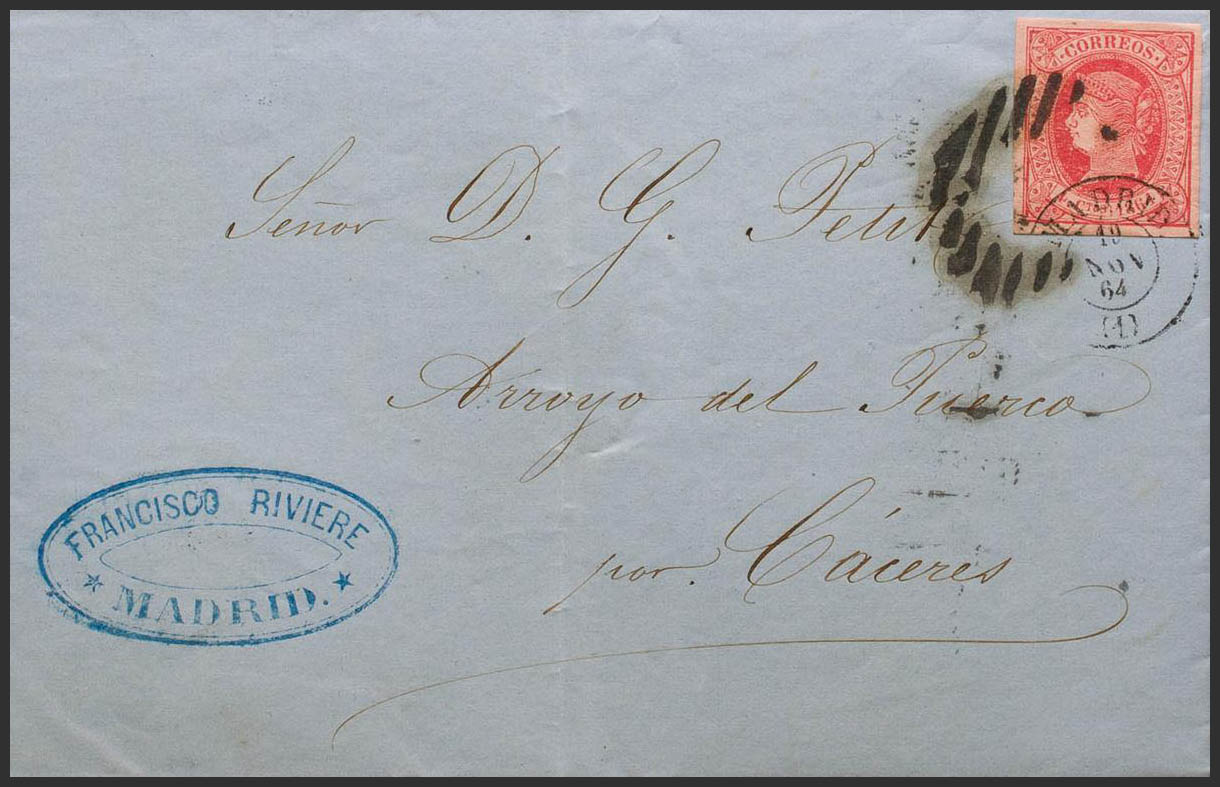 CORREOS
Señor D. G. Petit
10
NOV
64
(1)
Arroyo del Puerco
FRANCISCO RIVIERE
MADRID.
por. Cáceres